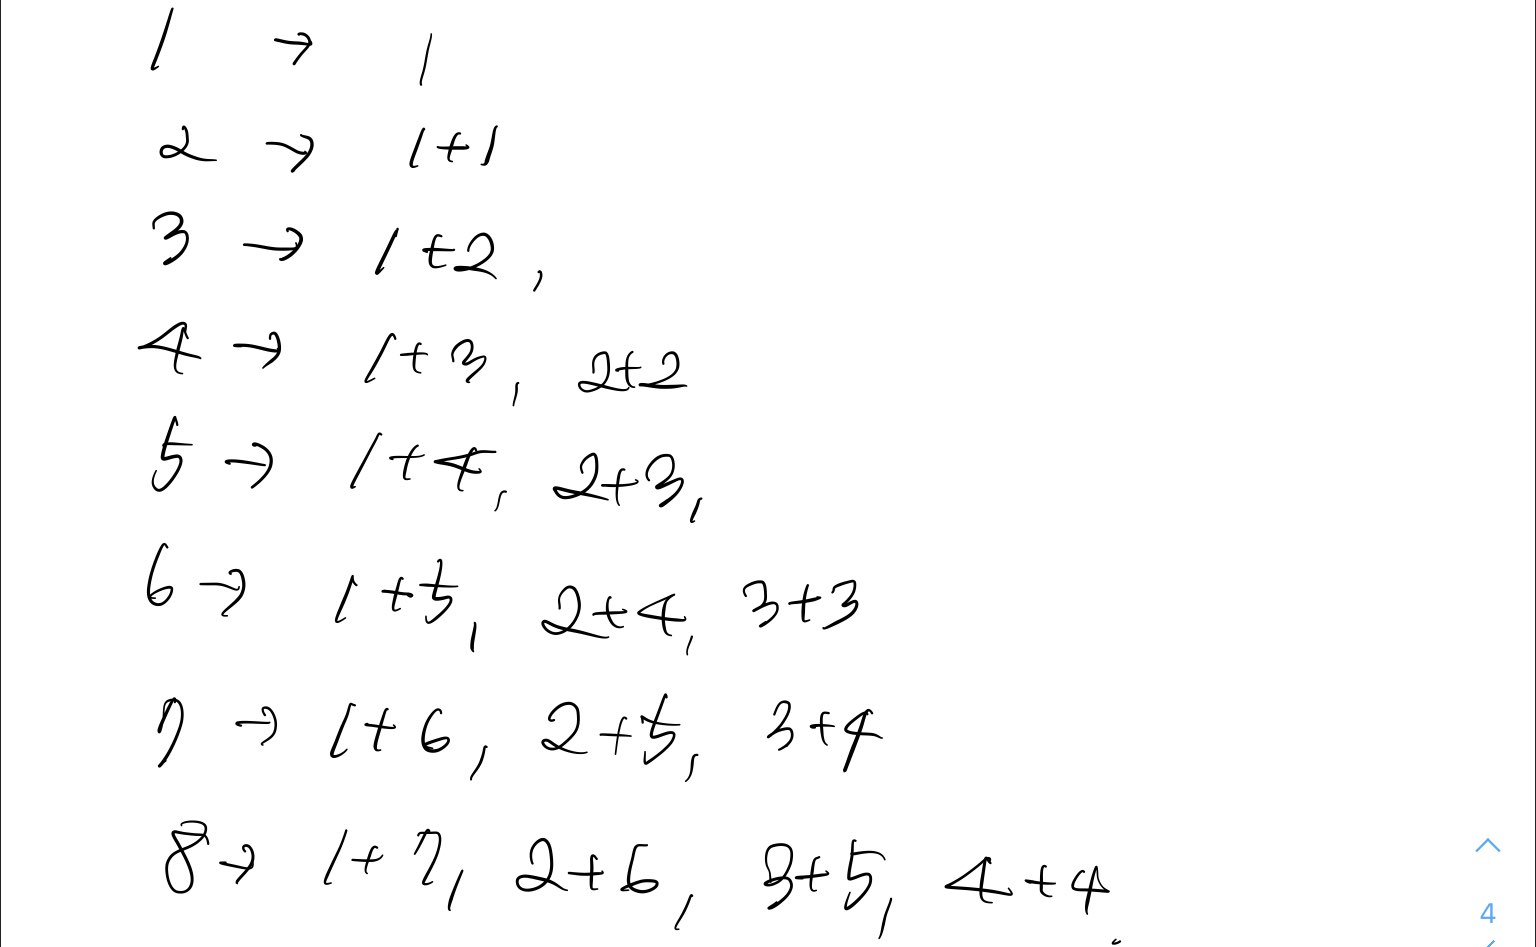 1 → 1
2 → 1+1
3 → 1+2,
4 → 1+3, 2+2
5 → 1+4, 2+3,
6 → 1+5, 2+4, 3+3
7 → 1+6, 2+5, 3+4
8 → 1+7, 2+6, 3+5, 4+4
4